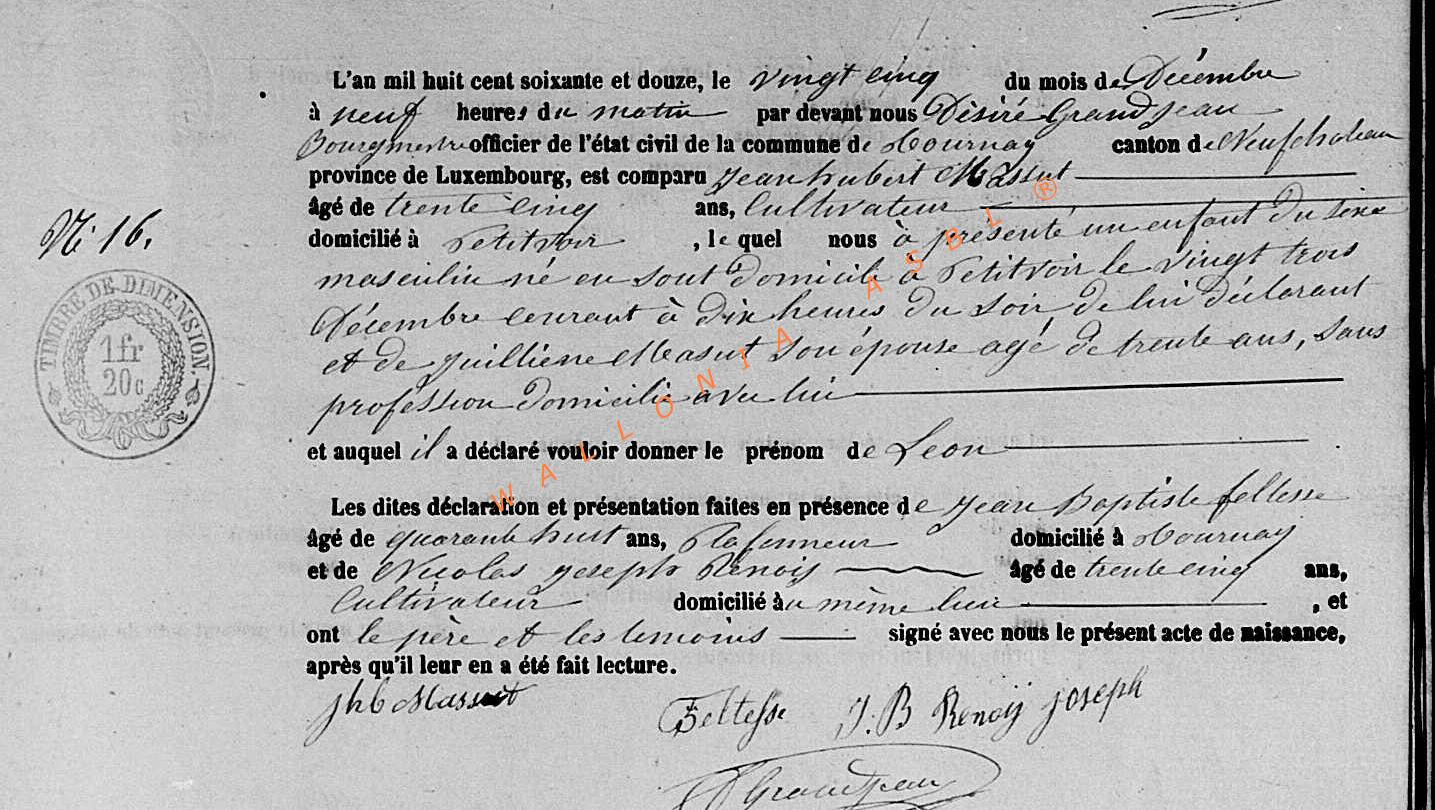 L'an mil huit cent soixante et douze, le vingt cinq du mois de Décembre
à neuf heures du matin par devant nous Désiré Grandjean
Bourgmestre officier de l'état civil de la commune de Tournay canton de Neufchateau
province de Luxembourg, est comparu Jean hubert Massut
âgé de trente cinq ans, Cultivateur
N° 16.
domicilié à Petitvoir, le quel nous à présenté un enfant du sexe
masculin né en sont domicile à Petitvoir le vingt trois
Décembre courant à dix heures du soir de lui déclarant
et de Juilliene Masut son épouse agé de trente ans, sans
profession domicilie avec lui
TIMBRE DE DIMENSION.
1 fr
20c
et auquel il a déclaré vouloir donner le prénom de Leon
Les dites déclaration et présentation faites en présence de Jean Baptiste feltesse
âgé de quarante huit ans, Plafonneur domicilié à Tournay
et de Nicolas Joseph Renoij âgé de trente cinq ans,
Cultivateur domicilié àu même lieu, et
ont le père et les temoins signé avec nous le présent acte de naissance,
après qu'il leur en a été fait lecture.
jhb Massut
Feltesse J. B Renoij joseph
D Grandjean
WALLONIA ASBL ®